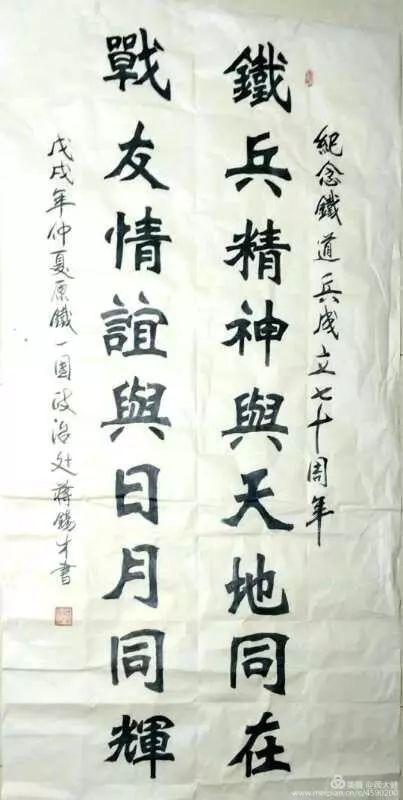 紀念鐵道兵成立七十周年
鐵兵精神與天地同在
戰友情誼與日月同輝
戊戌年仲夏原鐵一團政治处蔣錫才書
美篇 @蒋太健
www.meipian.cn/c/4590200